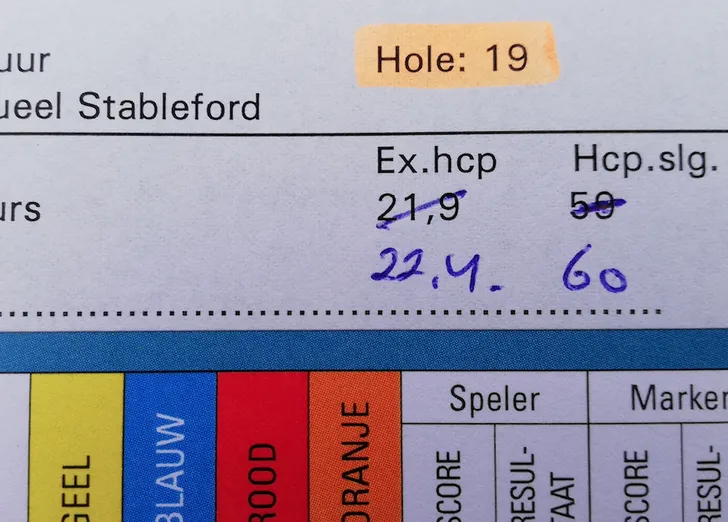 uur Hole: 19
ueel Stableford
Ex.hcp Hcp.slg.
urs 21,9 59
22.4. 60
Speler Marker
GEEL BLAUW ROOD ORANJE SCORE RESUL-TAAT SCORE RESUL-